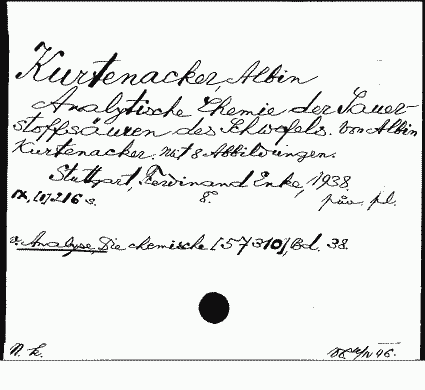 Kurtenacker, Albin
Analytische Chemie der Sauer-
stoffsäuren des Schwefels. Von Albin
Kurtenacker. Mit 8 Abbildungen.
Stuttgart, Ferdinand Enke, 1938.
IX, [1] 216 s. 8°. pův. pl.
v. Analyse, Die chemische [57310], Bd. 38.
N. k.